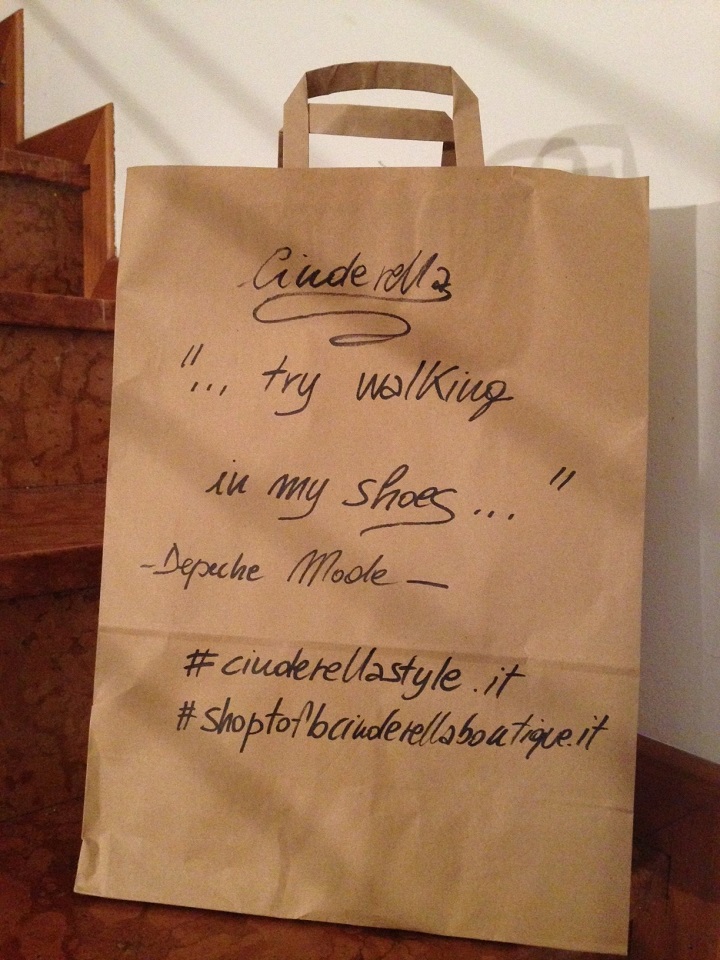 Cinderella
"... try walking
in my shoes ..."
- Depeche Mode -
#cinderellastyle.it
#shoptoflbcinderellaboutique.it